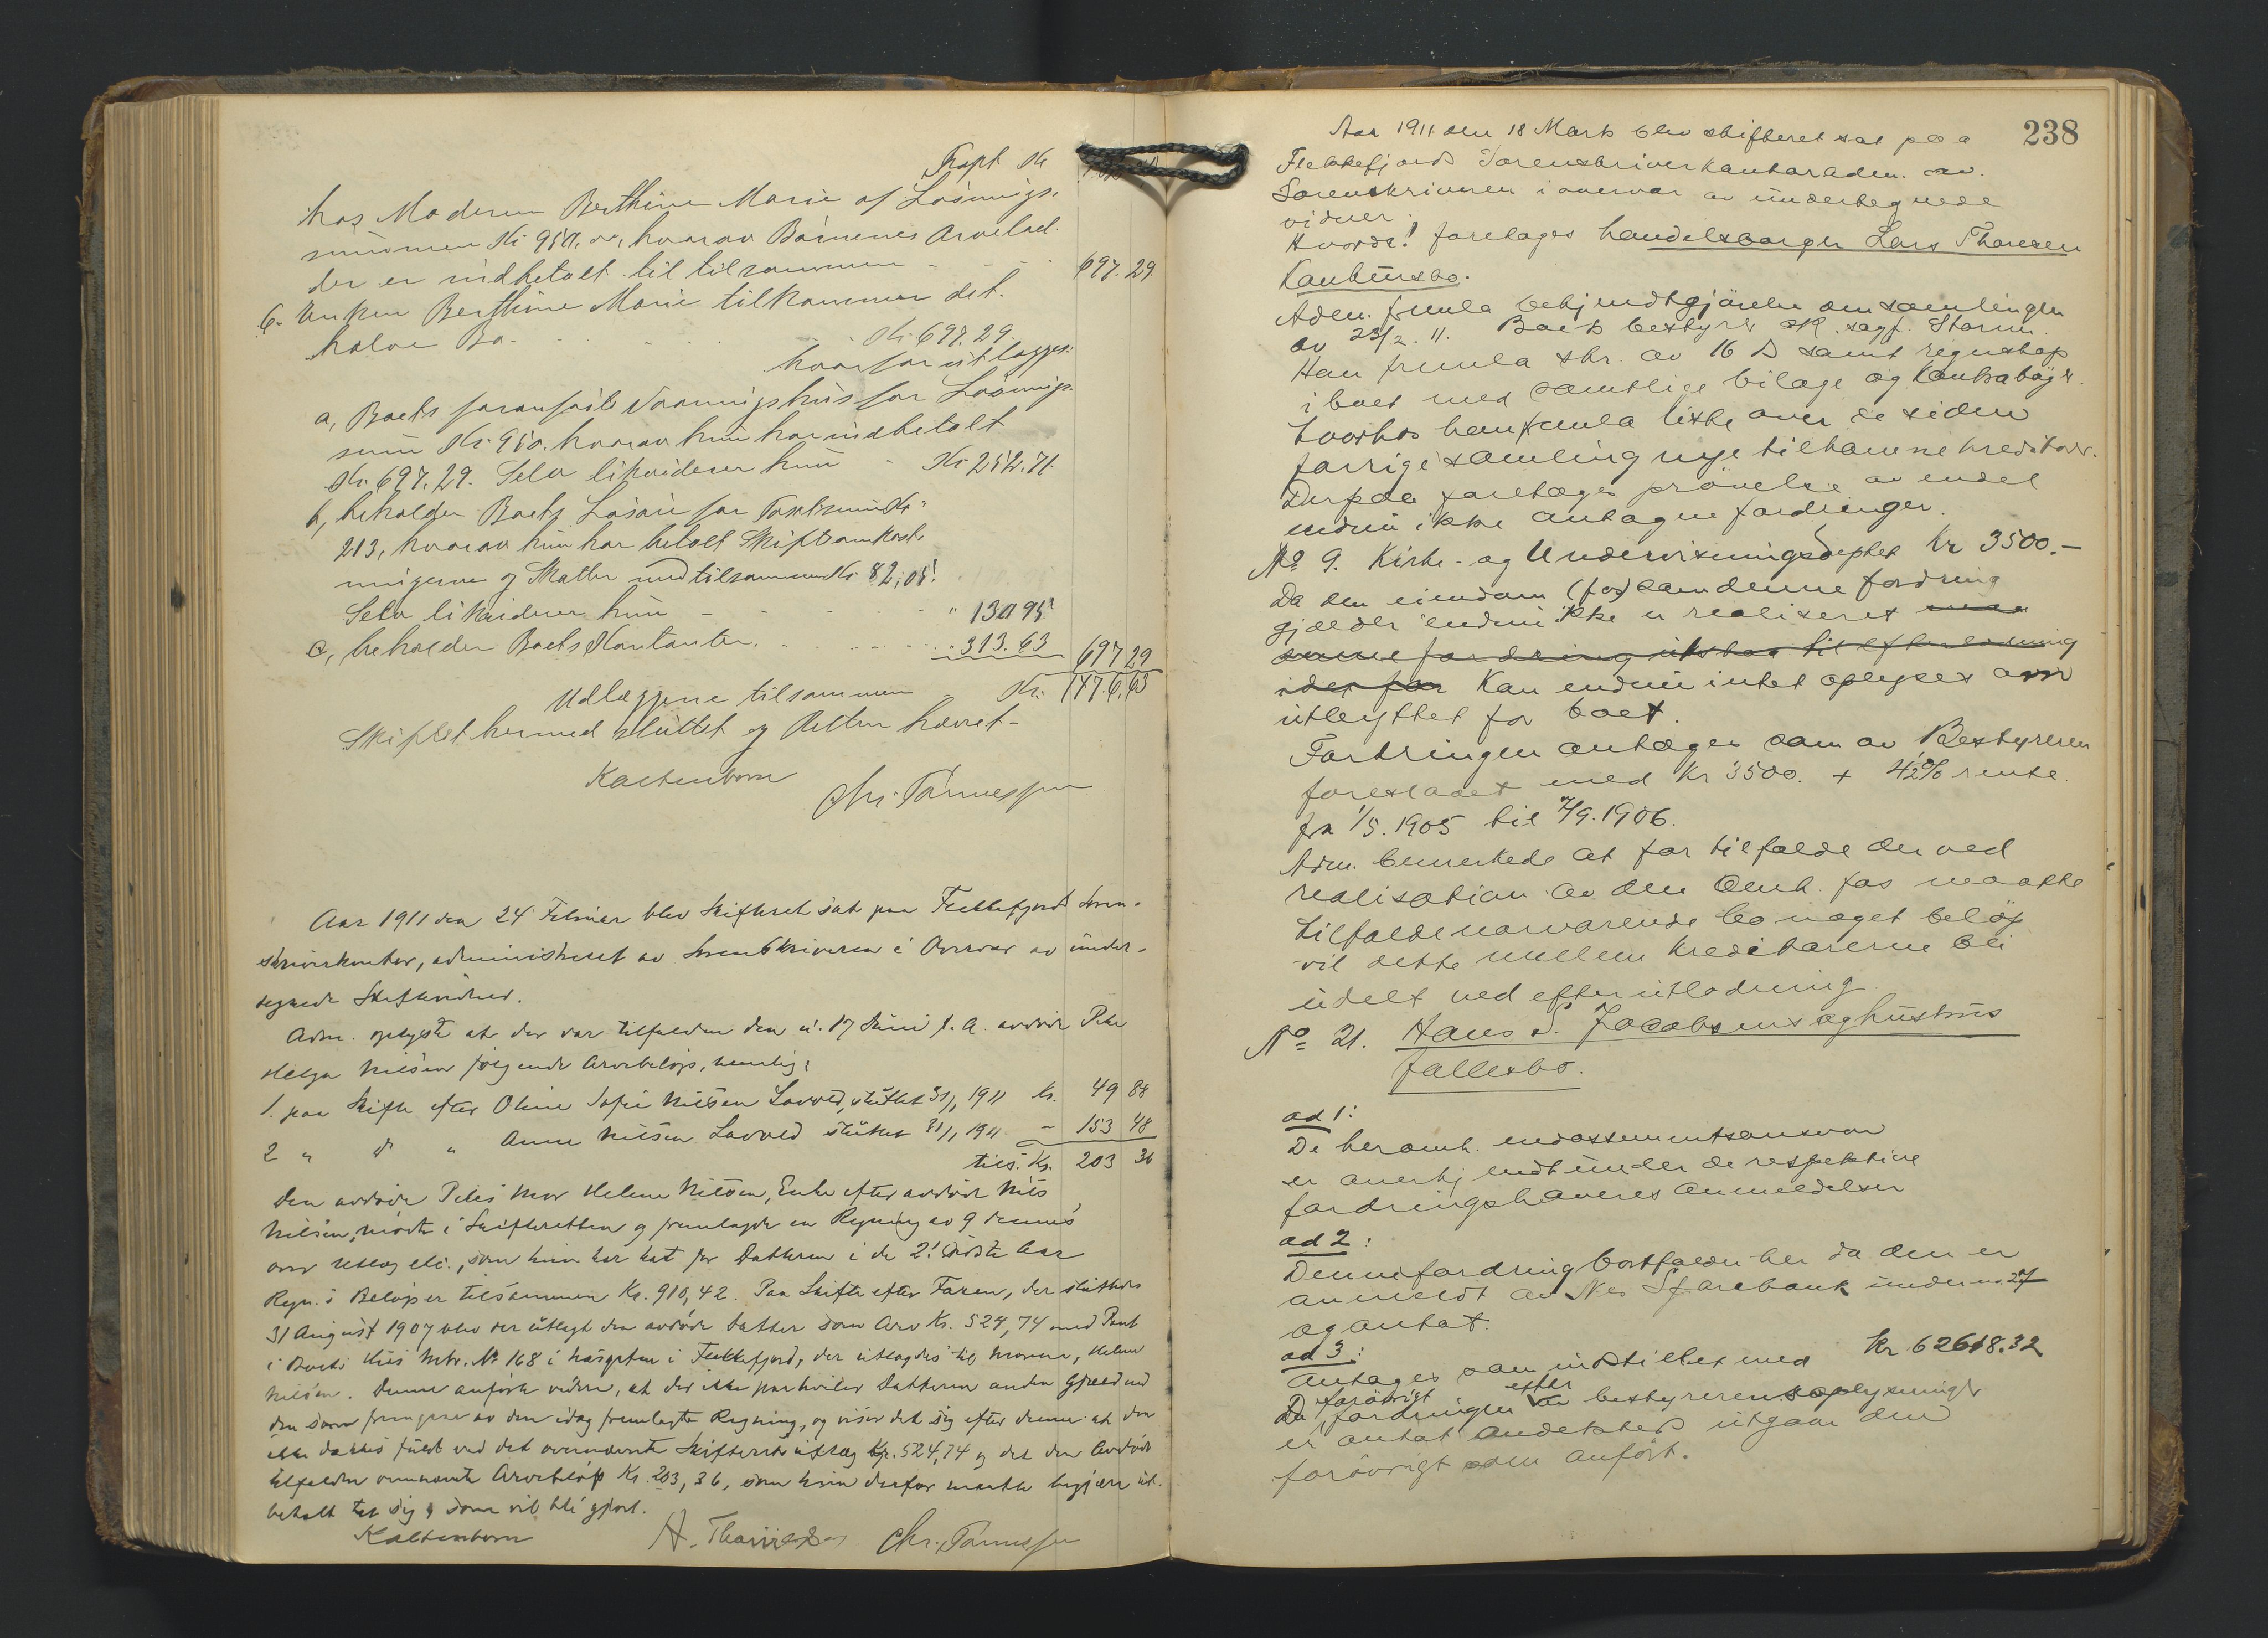 Trspt Kr
hos Moderen Berthine Marie af Løsnings-
summen Kr 950,00, hvorav Børnenes Arvelod-
der er indbetalt til tilsammen - - - 697.29
6. Enken Berthine Marie tilkommer det
halve Bo - - - Kr. 697.29
hvorfor utlægges:
a, Boets foranførte Vaaningshus for Løsnings-
sum Kr. 950. hvorav hun har indbetalt
Kr. 697.29. Selv likviderer hun - Kr 252.71.
b, beholder Boets Løsøre for Taxtsum Kr
213, hvorav hun har betalt Skifteomkost-
ningerne og Skatter med tilsammen Kr 82,05.
Selv likviderer hun - - - - " 130 95
c, beholder Boets Kontanter. - - - - 313.63 697 29
Udlæggene tilsammen Kr. 1476,63
Skiftet hermed sluttet og Retten hævet -
Kaltenborn Chr. Tönnessen
Aar 1911 den 24 Februar blev Skifteret sat paa Flekkefjords Soren-
skriverkontor, administreret av Sorenskriveren i Overvær av under-
tegnede Skiftevidner.
Adm. oplyste at der var tilfalden den 17 Juni f. A. avdøde Petra
Helga Nilsen følgende Arvebeløp, nemlig:
1. paa Skifte efter Oline Sofie Nilsen Lavold, sluttet 31/1 1911 Kr. 49 88
2 " d " Anne Nilsen Lavold sluttet 31/1 1911 - 153 48
tils. Kr. 203 36
Den avdøde Petras Mor Helene Nilsen, Enke efter avdøde Nils
Nilsen, mødte i Skifteretten og fremlagde en Regning av 9 dennes
over Utlæg etc., som hun har hat for Datteren i de 2 sidste Aar
Regn.s Beløp er tilsammen Kr. 910,42. Paa Skifte efter Faren, der sluttedes
31 August 1907 blev der utlagt den avdøde Datter som Arv Kr. 524,74 med Pant
i Boets Hus Mtr. No 168 i Flekkefjord, der utlagdes til Moren, Helene
Nilsen. Denne anførte videre, at der ikke paahviler Datteren anden Gjæld end
den som fremgaar av den idag fremlagte Regning, og viser det sig efter denne at den
ikke dækkes fuldt ved det ovennævnte Skifterets utlæg Kr. 524,74 og det den Avdøde
tilfaldne ovennævnte Arvebeløp Kr. 203,36, som hun derfor maatte begjære ut-
betalt til sig, som vil bli gjort.
Kaltenborn Chr. Tönnessen
238
Aar 1911 den 18 Mars blev skifteret sat paa
Flekkefjords Sorenskriverkontor adm. av
Sorenskriveren i overvær av undertegnede
vidner.
Hvorda! foretages handelsborger Lars Thorsen
konkursbo.
Adm. fremla bekjendtgjørelse om samlingen
av 23/2. 11. Boets bestyrer OR. sagf. Storm.
Han fremla skr. av 16 ds samt regnskap
i boet med samtlige bilage og kontrabøger.
Tvorhos han fremla liste over de siden
forrige samling nye tilkomne kreditorer.
Derpaa foretages prøvelse av endel
endnu ikke antagne fordringer.
No 9. Kirke- og Undervisningsdeptet Kr 3500.-
Da den eiendom (for) som denne fordring
gjælder endnu ikke er realiseret
kan endnu intet oplyses om
utbyttet for boet.
Fordringen antages som av Bestyreren
foreslaaet med Kr 3500. + 4 1/2% rente
fra 1/5. 1905 til 7/9. 1906.
Adm. bemerkede at for tilfælde der ved
realisation av den omh. fas maatte
tilfalde nærværende bo noget beløp
vil dette mellem kreditorerne bli
utdelt ved efterutlodning.
No 21. Hans S. Jacobsens og hustrus
fællesbo.
ad 1:
De her omh. endossementsansvar
er anerkjendt under de respektive
fordringshaveres anmeldelser
ad 2:
Denne fordring bortfalder her da den er
anmeldt av Nes Sparebank under no. 27
og antat.
ad 3:
antages som indstillet med Kr 62618.32
Da forøvrigt fordringen efter bestyrerens oplysninger
er antat andetsteds utgaar den
forøvrigt som anført.